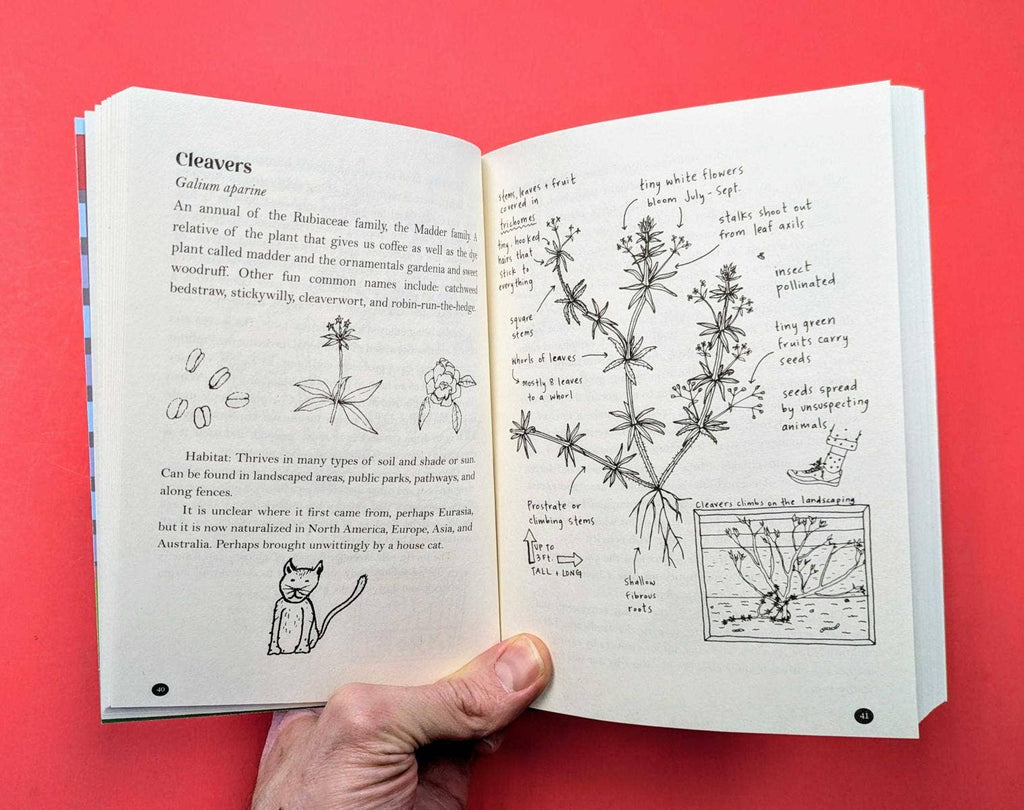 Cleavers
Galium aparine
An annual of the Rubiaceae family, the Madder family. A
relative of the plant that gives us coffee as well as the dye
plant called madder and the ornamentals gardenia and sweet
woodruff. Other fun common names include: catchweed
bedstraw, stickywilly, cleaverwort, and robin-run-the-hedge.
Habitat: Thrives in many types of soil and shade or sun.
Can be found in landscaped areas, public parks, pathways, and
along fences.
It is unclear where it first came from, perhaps Eurasia,
but it is now naturalized in North America, Europe, Asia, and
Australia. Perhaps brought unwittingly by a house cat.
40
stems, leaves + fruit
covered in
trichomes
tiny hooked
hairs that
stick to
everything
tiny white flowers
bloom July - Sept.
stalks shoot out
from leaf axils
insect
pollinated
square
stems
tiny green
fruits carry
seeds
whorls of leaves
mostly 8 leaves
to a whorl
seeds spread
by unsuspecting
animals
Prostrate or
climbing stems
UP TO
3 FT.
TALL + LONG
Shallow
fibrous
roots
Cleavers climbs on the landscaping
41